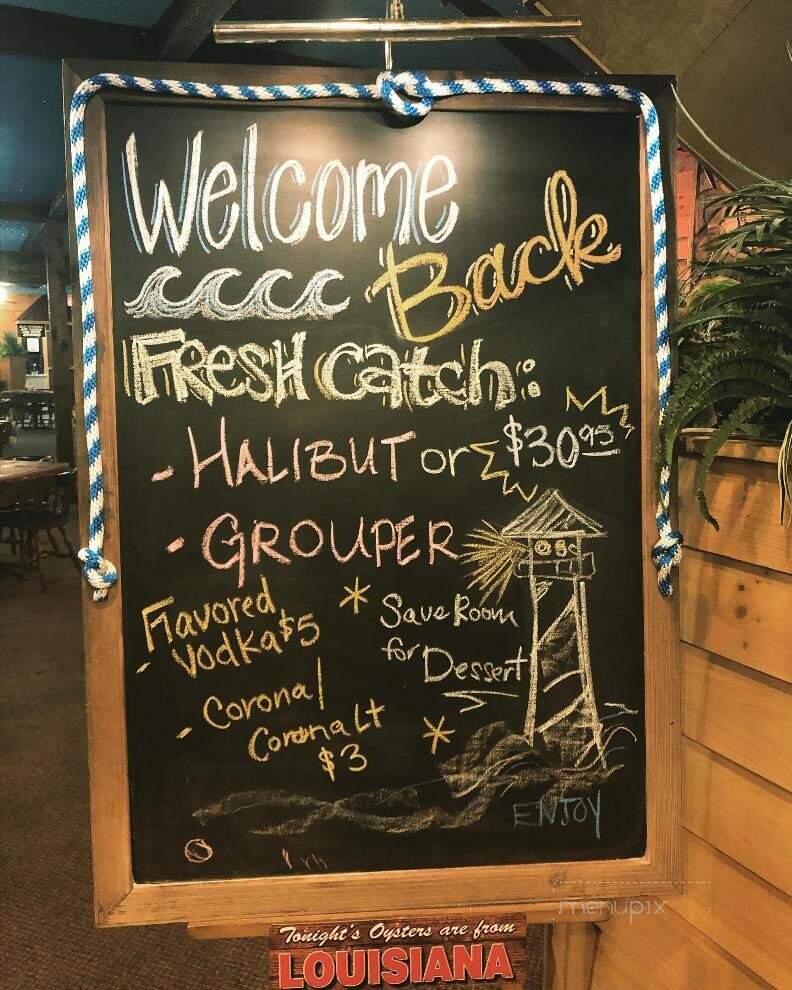 Welcome
Back
FRESH Catch:
- HALIBUT or $30.95
- GROUPER
Flavored
- Vodka $5
* Save Room
for Dessert
- Corona/
Corona Lt
$3 *
ENJOY
menupix
Tonight's Oysters are from
LOUISIANA